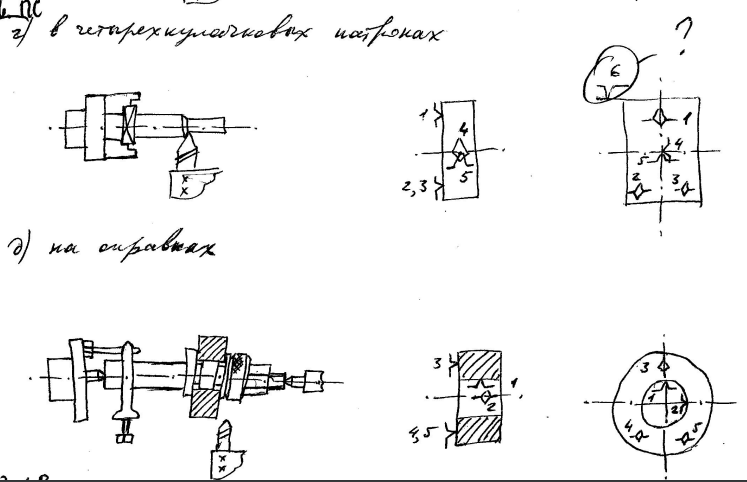 ПС
г) в четырехкулачковых патронах
?
6
1
1
4
4
5
5
2,3
2
3
д) на оправках
3
1
2
4,5
3
1
2
4
5